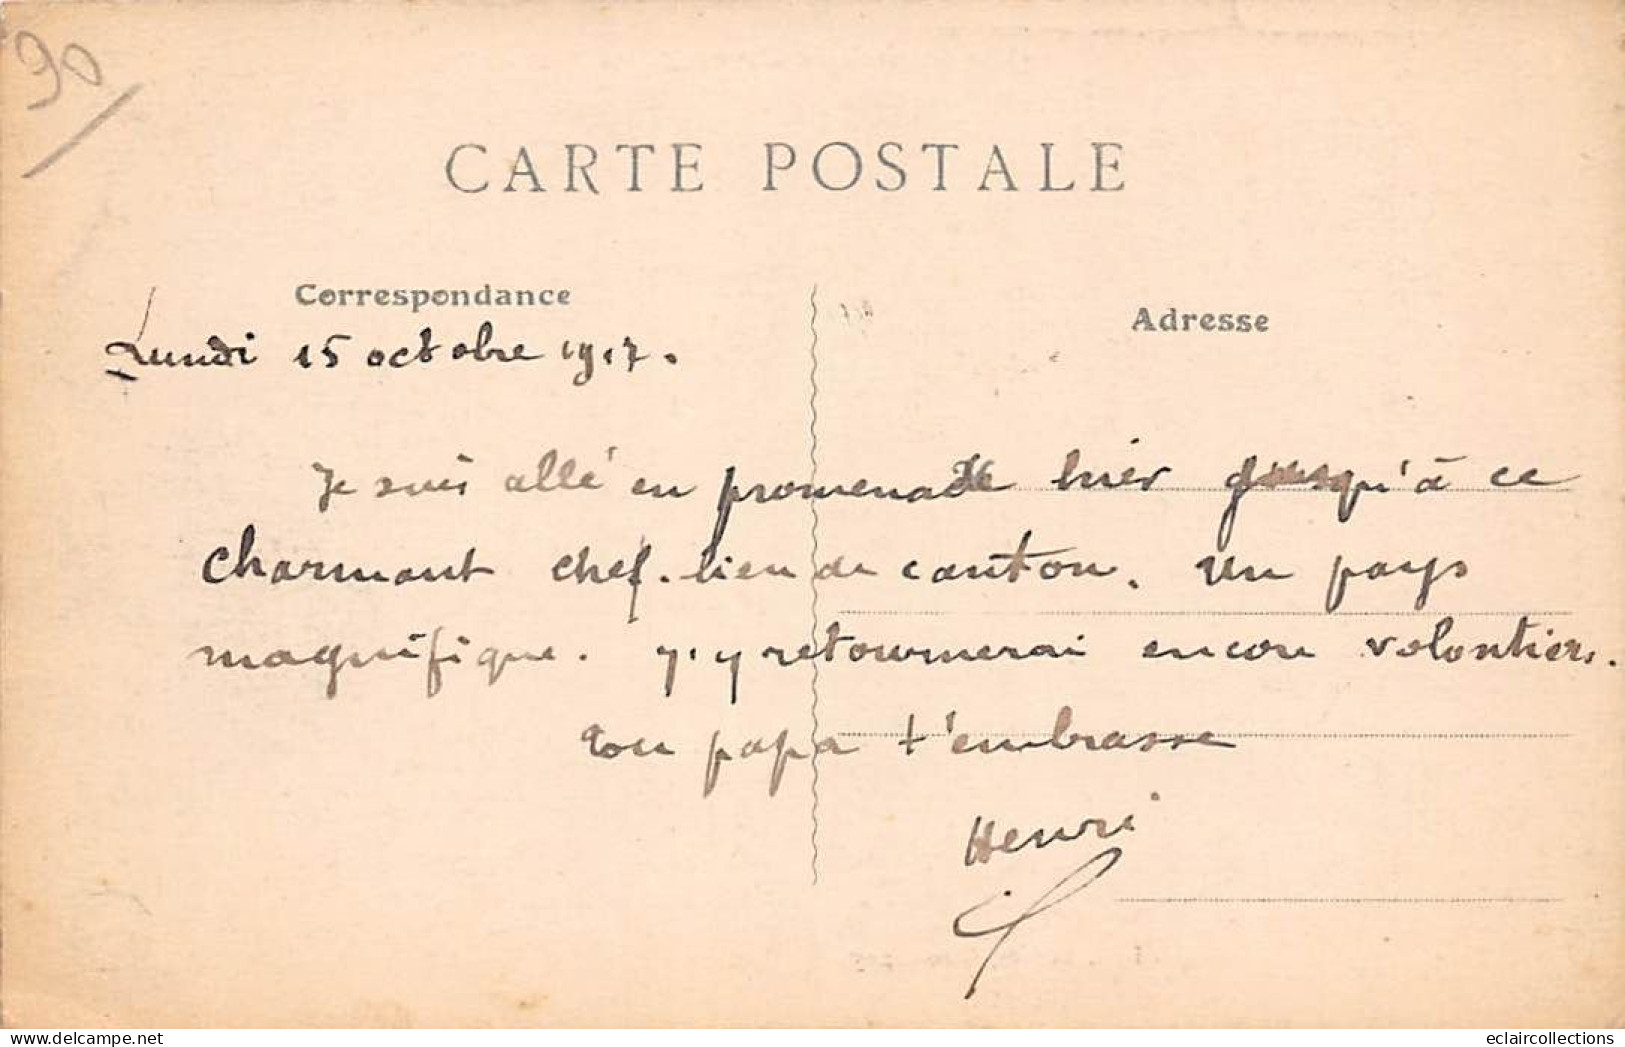 90
CARTE POSTALE
Correspondance
Adresse
Lundi 15 octobre 1917.
Je suis allé en promenade hier jusqu'à ce
charmant chef-lieu de canton. Un pays
magnifique. J'y retournerai encore volontiers.
Ton papa t'embrasse
Henri
www.delcampe.net
eclaircollections